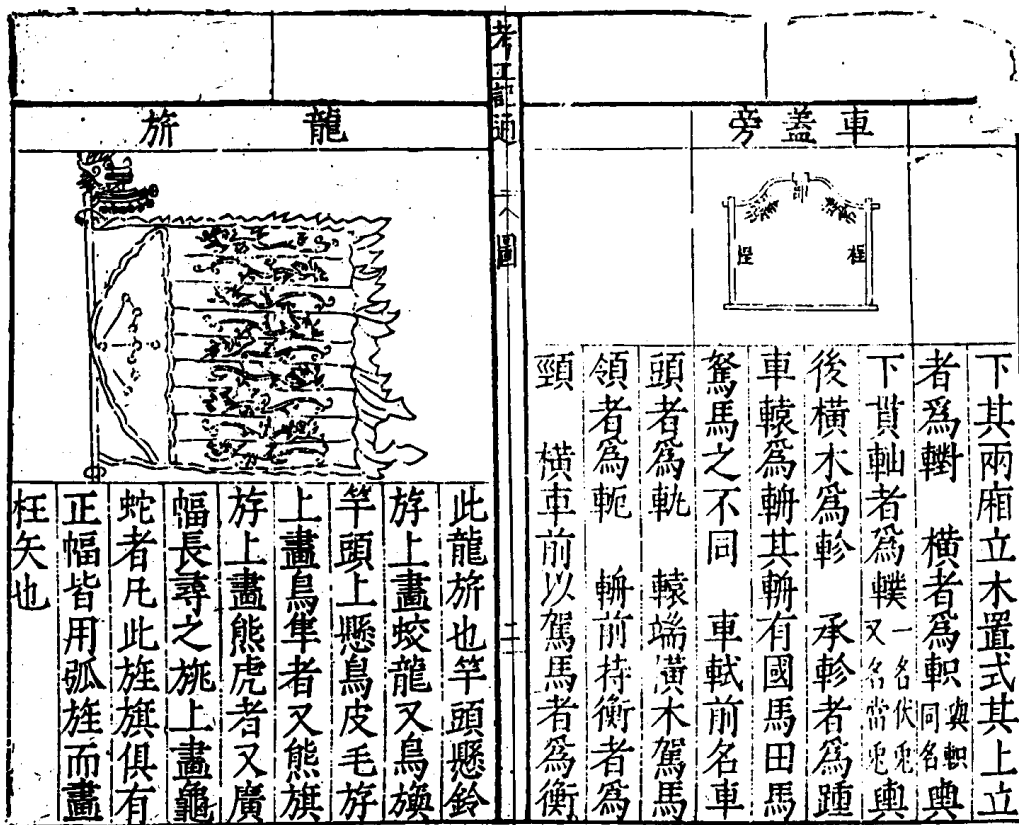 車蓋旁
桯
桯
下其兩廂立木置式其上立
者爲轛 橫者爲軹與軹同名輿
下貫軸者爲轐一名伏兎又名當兎輿
後橫木爲軫 承軫者爲踵
車轅爲輈其輈有國馬田馬
駑馬之不同 車軾前名車
頭者爲軓 轅端橫木駕馬
領者爲軛 輈前持衡者爲
頸 橫車前以駕馬者爲衡
考工記通
二八圖
二
龍旂
此龍旂也竿頭懸鈴
斿上畫蛟龍又鳥旟
竿頭上懸鳥皮毛斿
上畫鳥隼者又熊旗
斿上畫熊虎者又廣
幅長尋之旐上畫龜
蛇者凡此旌旗俱有
正幅皆用弧旌而畫
枉矢也